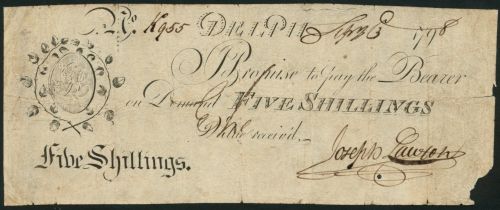 No. K955 DELPH 1798
I Promise to Pay the Bearer
on Demand FIVE SHILLINGS
Value receiv'd.
Five Shillings. Joseph Lawton